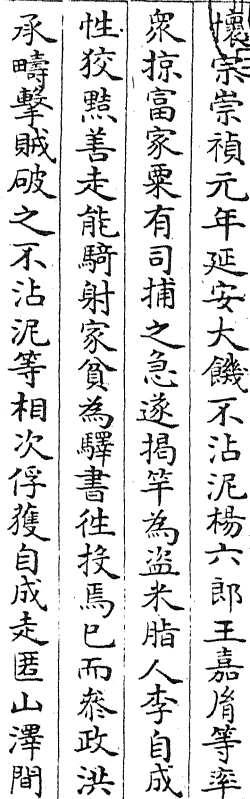 懷宗崇禎元年延安大饑不沾泥楊六郎王嘉胤等率
衆掠富家粟有司捕之急遂揭竿為盜米脂人李自成
性狡黠善走能騎射家貧為驛書徃投焉已而叅政洪
承疇擊賊破之不沾泥等相次俘獲自成走匿山澤間